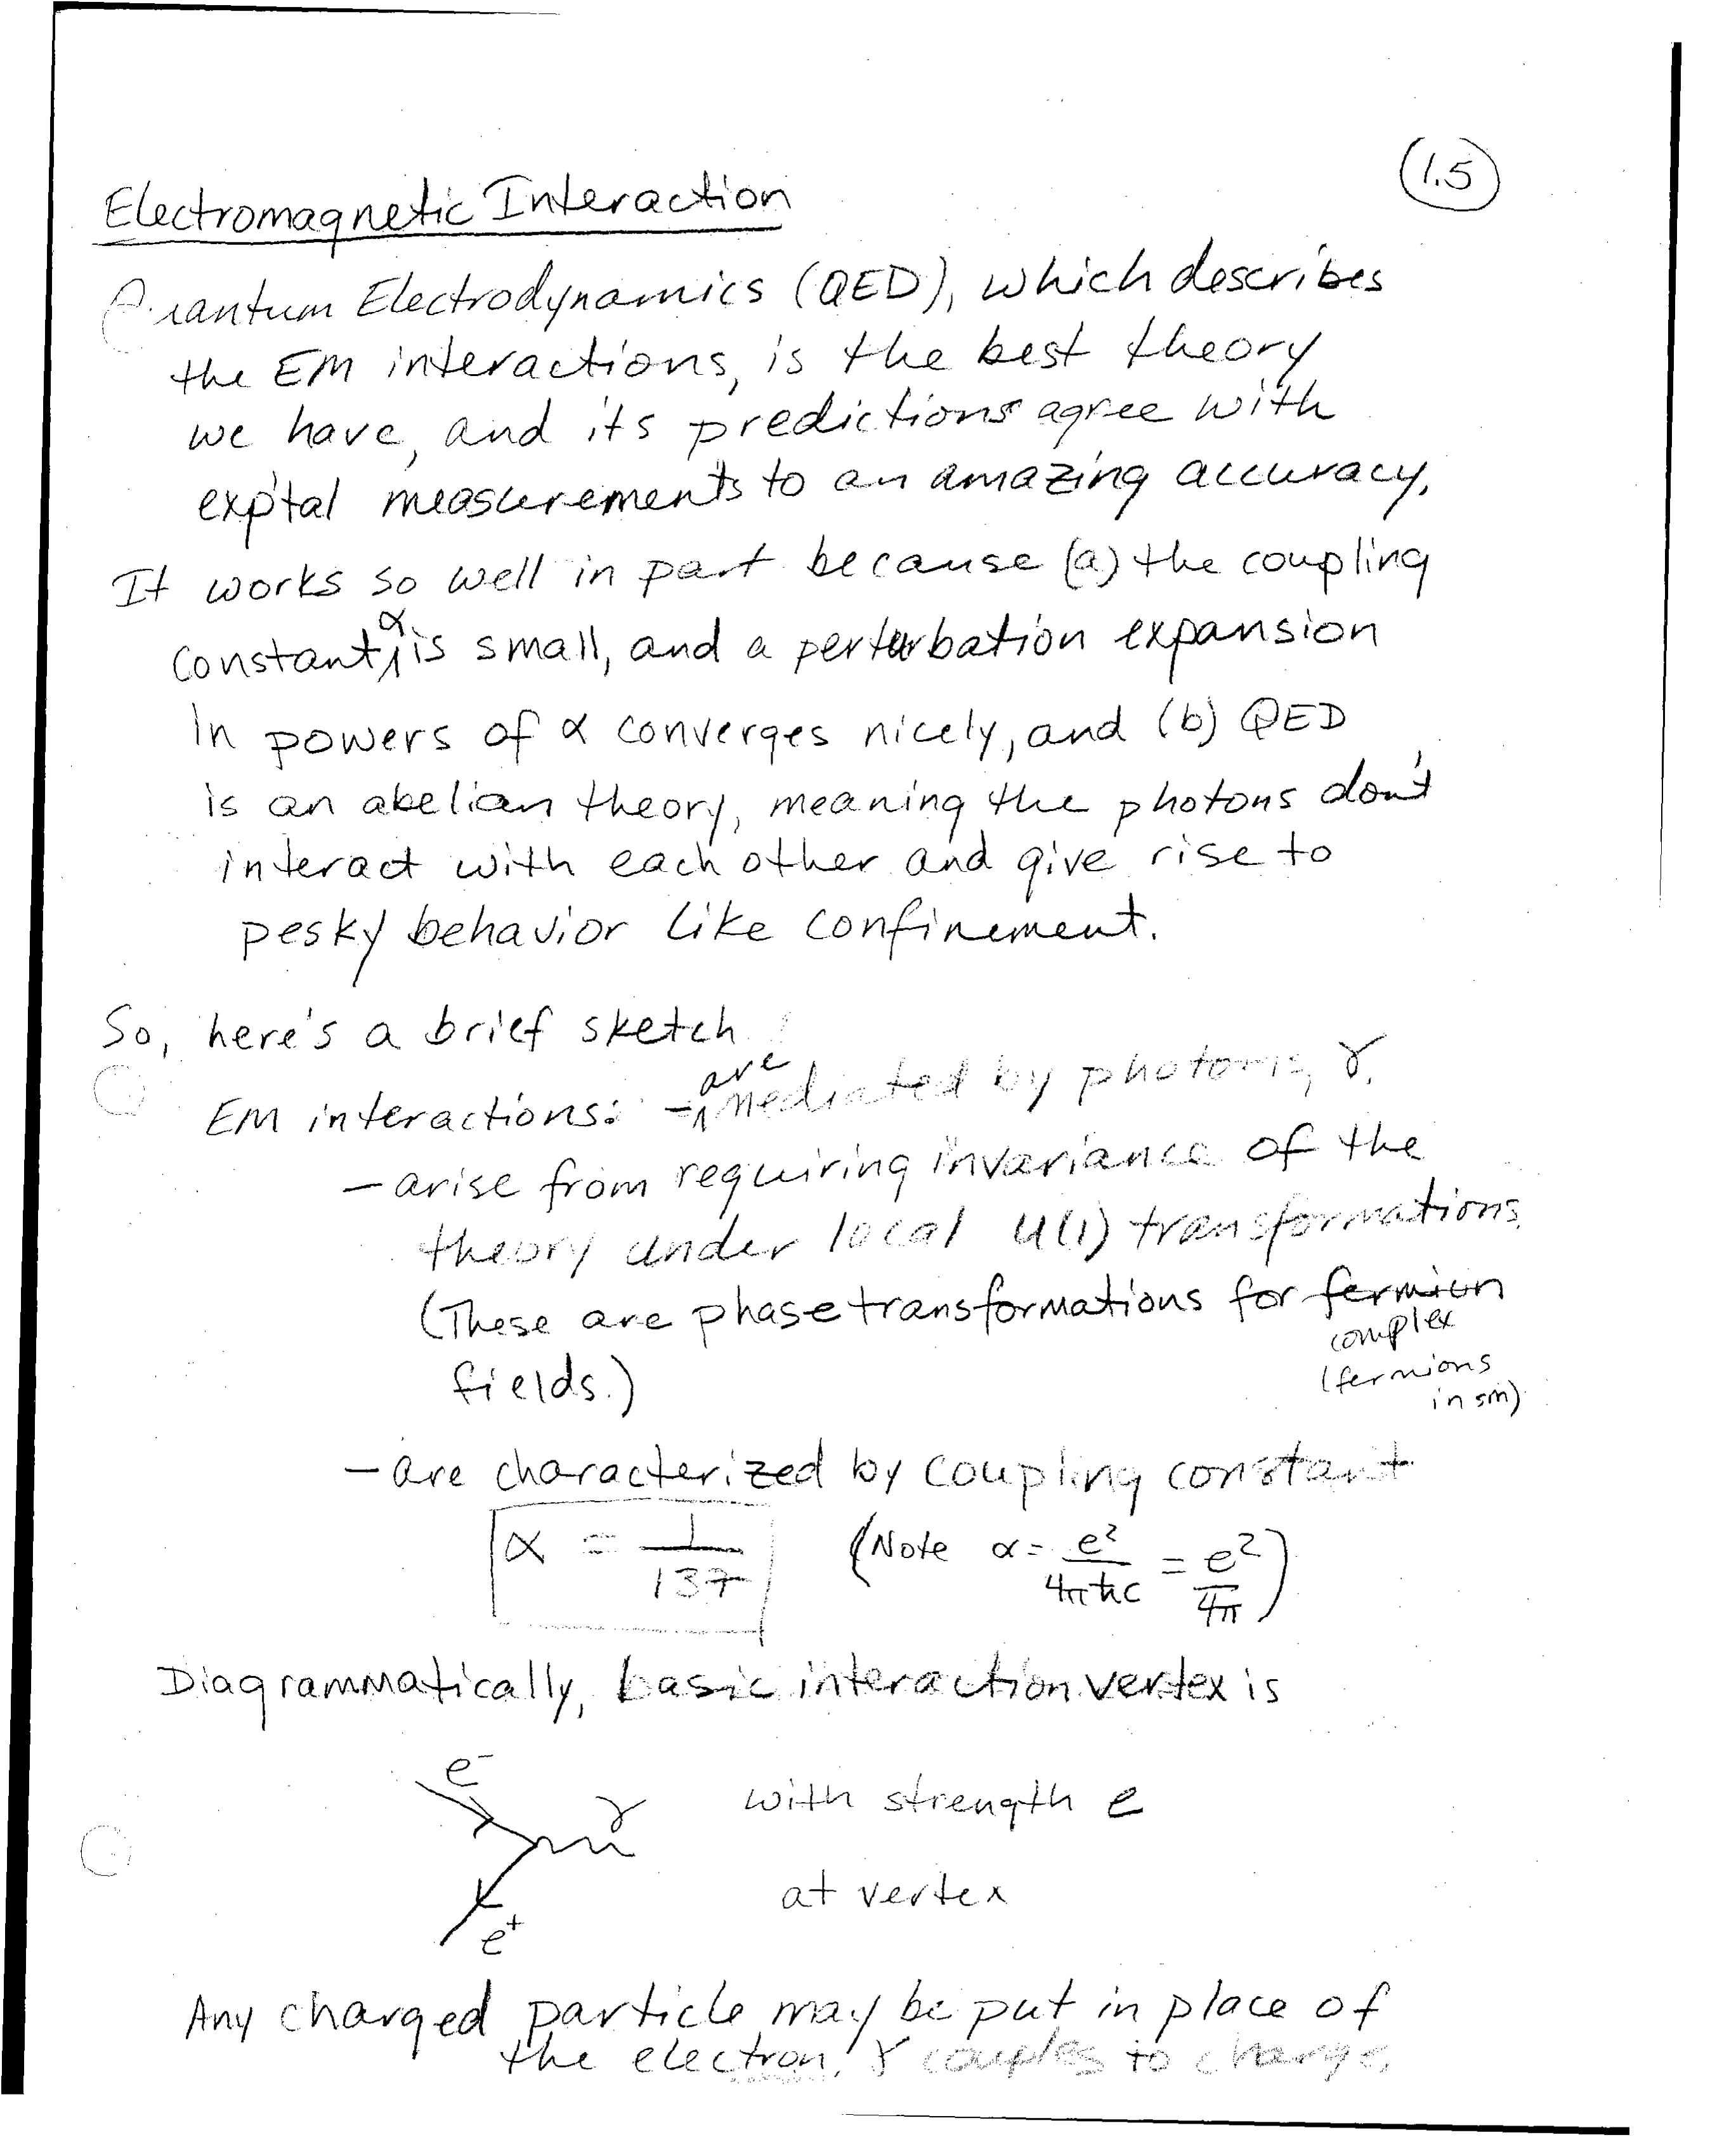 1.5
Electromagnetic Interaction
Quantum Electrodynamics (QED), which describes
the EM interactions, is the best theory
we have, and its predictions agree with
exp'tal measurements to an amazing accuracy.
It works so well in part because (a) the coupling
constant, α is small, and a perturbation expansion
in powers of α converges nicely, and (b) QED
is an abelian theory, meaning the photons don't
interact with each other and give rise to
pesky behavior like confinement.
So, here's a brief sketch
EM interactions: - are mediated by photons, γ.
- arise from requiring invariance of the
theory under local U(1) transformations.
(These are phase transformations for fermion
complex
fields.)
(fermions
in SM)
- are characterized by coupling constant
α = 1/137 (Note α = e²/4πħc = e²/4π)
Diagrammatically, basic interaction vertex is
e⁻
γ with strength e
at vertex
e⁺
Any charged particle may be put in place of
the electron. γ couples to charge.